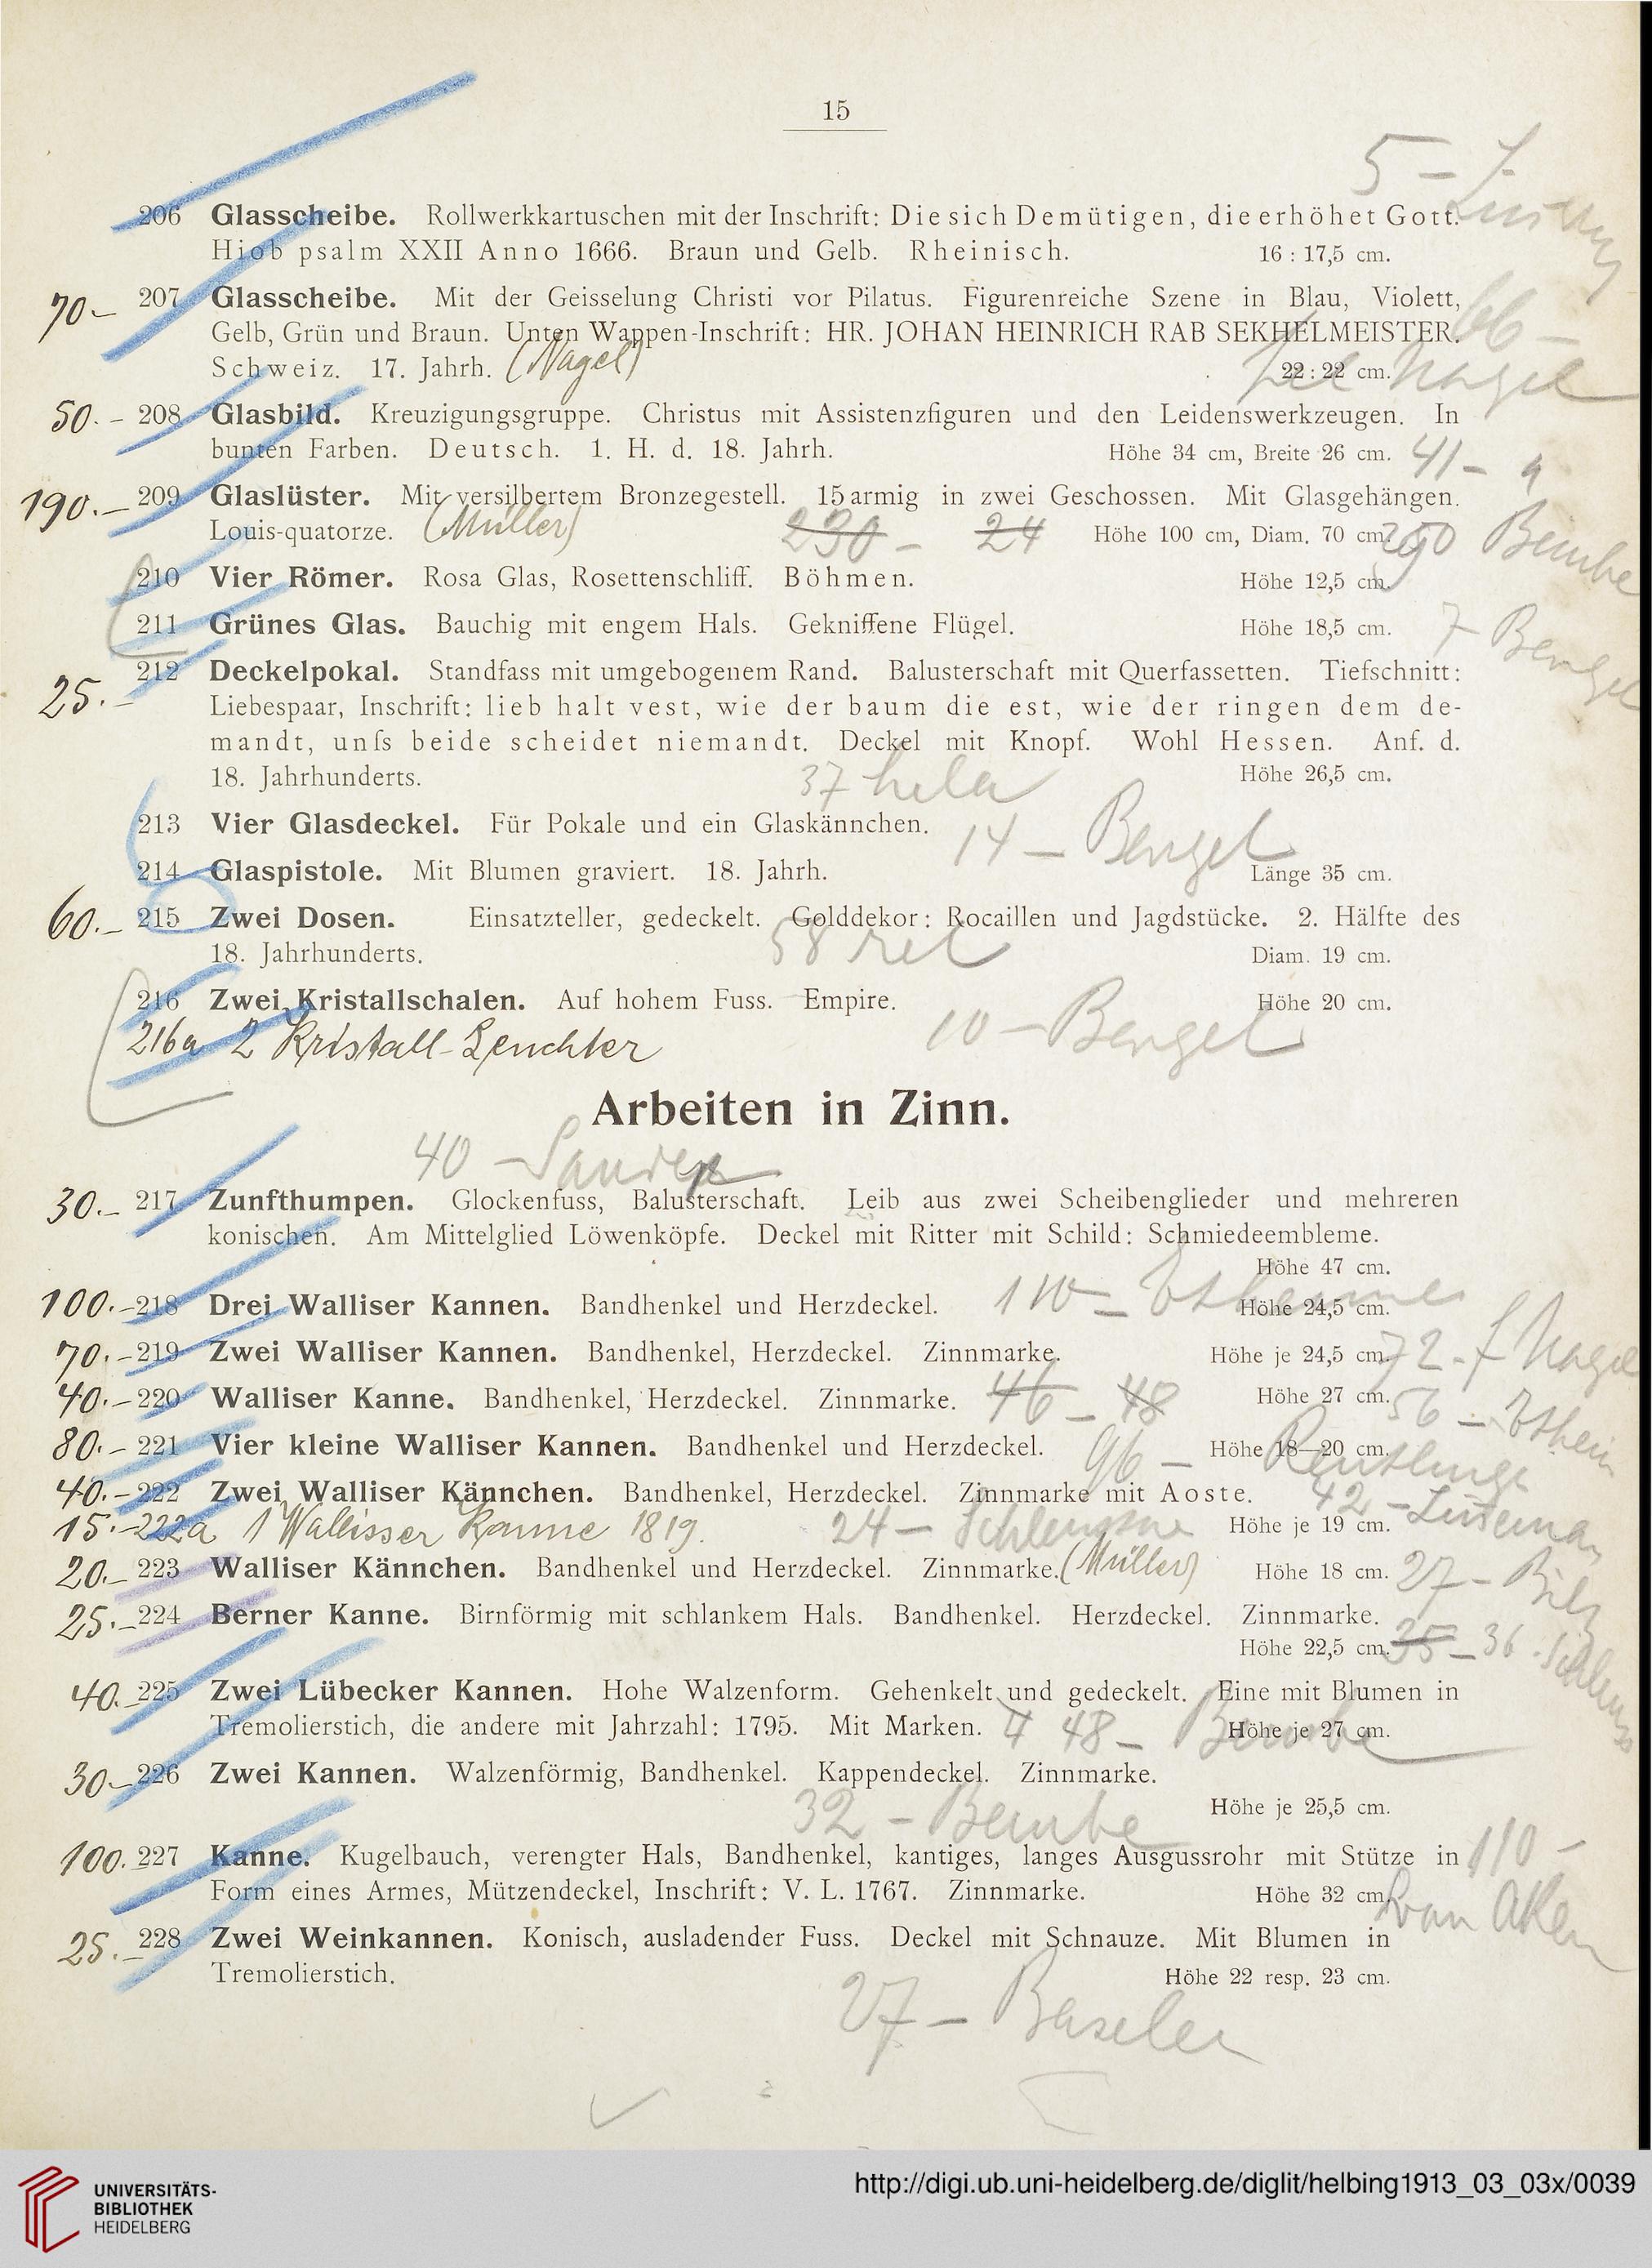 15
5 –
206 Glasscheibe. Rollwerkkartuschen mit der Inschrift: Die sich Demütigen, die erhöhet Gott.
Hiob psalm XXII Anno 1666. Braun und Gelb. Rheinisch. 16 : 17,5 cm.
70.– 207 Glasscheibe. Mit der Geisselung Christi vor Pilatus. Figurenreiche Szene in Blau, Violett,
Gelb, Grün und Braun. Unten Wappen-Inschrift: HR. JOHAN HEINRICH RAB SEKHELMEISTER. 66 –
Schweiz. 17. Jahrh. (Nagel) 22 : 22 cm. Nagel
50.– 208 Glasbild. Kreuzigungsgruppe. Christus mit Assistenzfiguren und den Leidenswerkzeugen. In
bunten Farben. Deutsch. 1. H. d. 18. Jahrh. Höhe 34 cm, Breite 26 cm. 41 –
190.– 209 Glaslüster. Mit versilbertem Bronzegestell. 15armig in zwei Geschossen. Mit Glasgehängen.
Louis-quatorze. (Müller) 230 – 24 Höhe 100 cm, Diam. 70 cm. 290 Bembe
210 Vier Römer. Rosa Glas, Rosettenschliff. Böhmen. Höhe 12,5 cm.
211 Grünes Glas. Bauchig mit engem Hals. Gekniffene Flügel. Höhe 18,5 cm. 7 – Bengel
25.– 212 Deckelpokal. Standfass mit umgebogenem Rand. Balusterschaft mit Querfassetten. Tiefschnitt:
Liebespaar, Inschrift: lieb halt vest, wie der baum die est, wie der ringen dem de-
mandt, unſs beide scheidet niemandt. Deckel mit Knopf. Wohl Hessen. Anf. d.
18. Jahrhunderts. 37 Höhe 26,5 cm.
213 Vier Glasdeckel. Für Pokale und ein Glaskännchen. 14 – Bengel
214 Glaspistole. Mit Blumen graviert. 18. Jahrh. Länge 35 cm.
60.– 215 Zwei Dosen. Einsatzteller, gedeckelt. Golddekor: Rocaillen und Jagdstücke. 2. Hälfte des
18. Jahrhunderts. 58 Diam. 19 cm.
216 Zwei Kristallschalen. Auf hohem Fuss. Empire. Höhe 20 cm.
216a 2 Kristall-Leuchter 10 – Bengel
Arbeiten in Zinn.
40 –
30.– 217 Zunfthumpen. Glockenfuss, Balusterschaft. Leib aus zwei Scheibenglieder und mehreren
konischen. Am Mittelglied Löwenköpfe. Deckel mit Ritter mit Schild: Schmiedeembleme.
Höhe 47 cm.
100.– 218 Drei Walliser Kannen. Bandhenkel und Herzdeckel. 110 – Höhe 24,5 cm.
70.– 219 Zwei Walliser Kannen. Bandhenkel, Herzdeckel. Zinnmarke. Höhe je 24,5 cm. 72 – Nagel
40.– 220 Walliser Kanne. Bandhenkel, Herzdeckel. Zinnmarke. 46 – 48 Höhe 27 cm. 56 –
80.– 221 Vier kleine Walliser Kannen. Bandhenkel und Herzdeckel. 96 – Höhe 18–20 cm.
40.– 222 Zwei Walliser Kännchen. Bandhenkel, Herzdeckel. Zinnmarke mit Aoste. 42 –
15.– 222a 1 Wallisser Kanne 1819. 24 – Höhe je 19 cm.
20.– 223 Walliser Kännchen. Bandhenkel und Herzdeckel. Zinnmarke. (Müller) Höhe 18 cm. 27 –
25.– 224 Berner Kanne. Birnförmig mit schlankem Hals. Bandhenkel. Herzdeckel. Zinnmarke.
Höhe 22,5 cm. 35 – 36
40. 225 Zwei Lübecker Kannen. Hohe Walzenform. Gehenkelt und gedeckelt. Eine mit Blumen in
Tremolierstich, die andere mit Jahrzahl: 1795. Mit Marken. 48 – Bembe Höhe je 27 cm.
30.– 226 Zwei Kannen. Walzenförmig, Bandhenkel. Kappendeckel. Zinnmarke.
32 – Bembe Höhe je 25,5 cm.
100. 227 Kanne. Kugelbauch, verengter Hals, Bandhenkel, kantiges, langes Ausgussrohr mit Stütze in 110 –
Form eines Armes, Mützendeckel, Inschrift: V. L. 1767. Zinnmarke. Höhe 32 cm. van Aken
25.– 228 Zwei Weinkannen. Konisch, ausladender Fuss. Deckel mit Schnauze. Mit Blumen in
Tremolierstich. Höhe 22 resp. 23 cm.
27 – Baseler
UNIVERSITÄTS-
BIBLIOTHEK
HEIDELBERG
http://digi.ub.uni-heidelberg.de/diglit/helbing1913_03_03x/0039